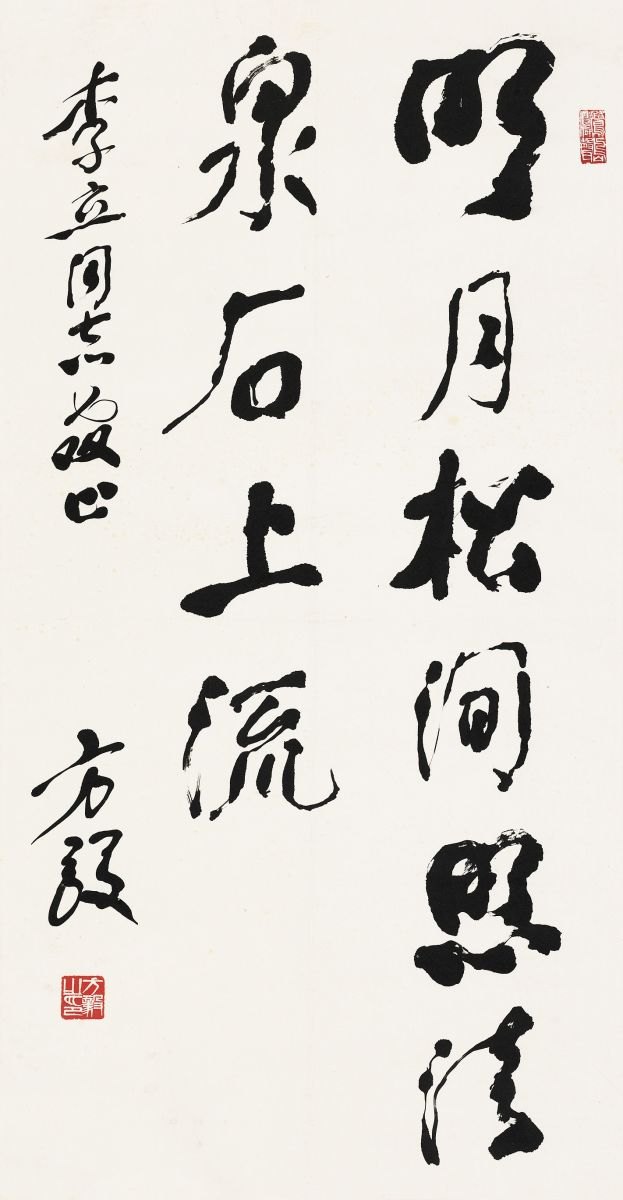 明月松涧照清
泉石上流
李立同志正
方毅
方毅之印